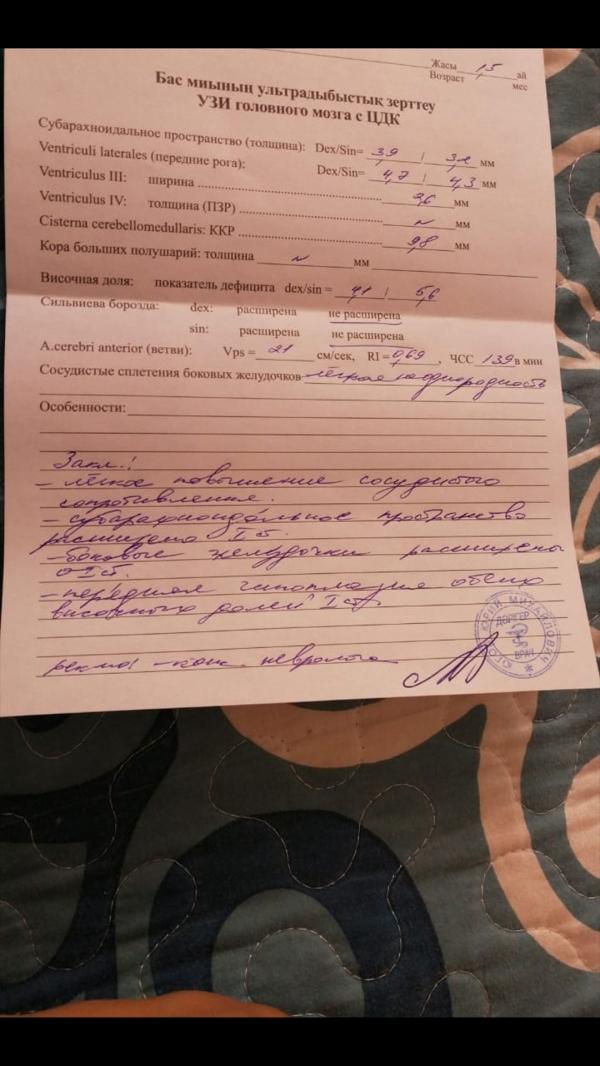 Жасы 1,5 ай
Возраст мес
Бас миының ультрадыбыстық зерттеу
УЗИ головного мозга с ЦДК
Субарахноидальное пространство (толщина): Dex/Sin= 3,9 | мм
Ventriculi laterales (передние рога): Dex/Sin= 4,7 | 4,3 мм
Ventriculus III: ширина мм
Ventriculus IV: толщина (ПЗР) N мм
Cisterna cerebellomedullaris: ККР 9,8 мм
Кора больших полушарий: толщина N мм
Височная доля: показатель дефицита dex/sin = 4,1 | 5,6
Сильвиева борозда: dex: расширена не расширена
sin: расширена не расширена
A.cerebri anterior (ветви): Vps = 21 см/сек, RI = 0,69 , ЧСС 139 в мин
Сосудистые сплетения боковых желудочков лёгкая неоднородность
Особенности:
Закл.:
- лёгкое повышение сосудистого
сопротивления.
- субарахноидальное пространство
расширено I ст.
- боковые желудочки расширены
0-I ст.
- передняя гипоплазия обеих
височных долей I ст.
реком: - конс. невролога
ЮРИЙ МИХАЙЛОВИЧ
ВРАЧ